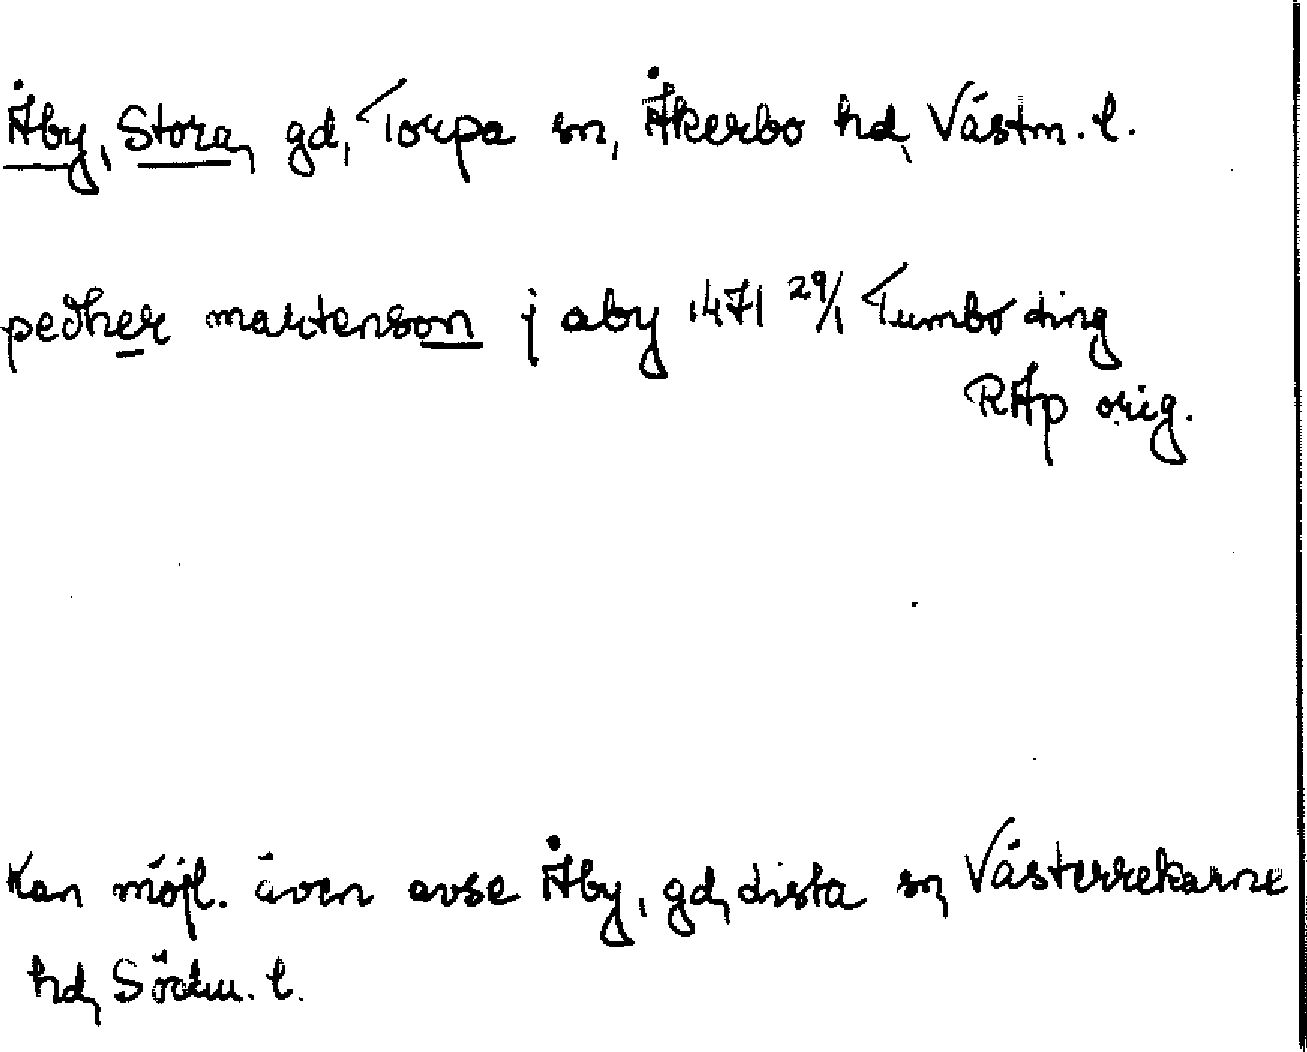 Åby, Stora, gd, Torpa sn, Åkerbo hd, Västm. l.
pedher martenson j aby 1471 29/1 Tumbo ting
RAp orig.
Kan möjl. även avse Åby, gd, Lista sn, Västerrekarne
hd, Södm. l.